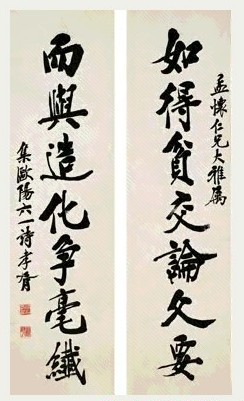 孟懷仁兄大雅属
如得貧交論久要
而與造化争毫纖
集歐陽六一詩孝胥